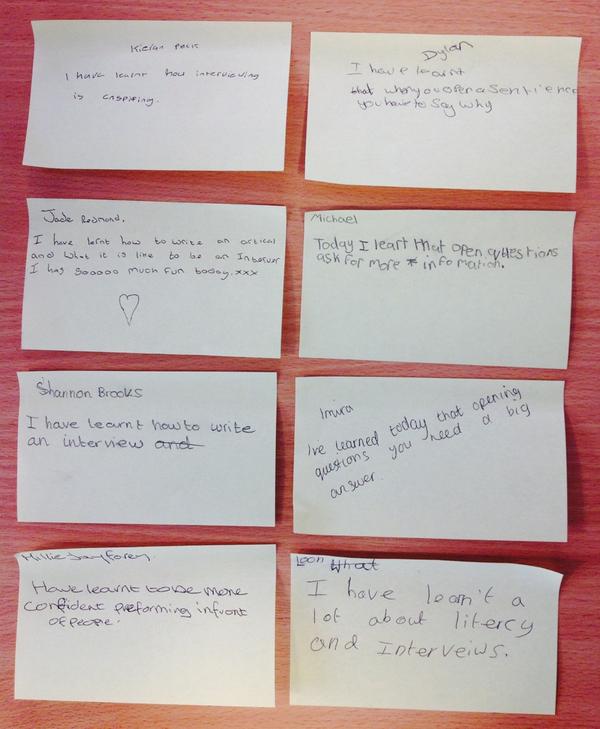 Kieran Peck
I have learnt how interviewing
is inspiring.
Dylan
I have learnt
that when you open a Sentience
you have to say why
Jade Redmond.
I have lernt how to write an artical
and what it is like to be an Interver
I has sooooo much fun today.xxx
Michael
Today I leart that open questions
ask for more * infomation.
Shannon Brooks
I have learnt how to write
an interview and
Imira
I've learned today that opening
questions you need a big
answer.
Millie Jay Forey
Have learnt to be more
confident preforming infront
of people.
Leon What
I have learn't a
lot about litercy
and Interveiws.